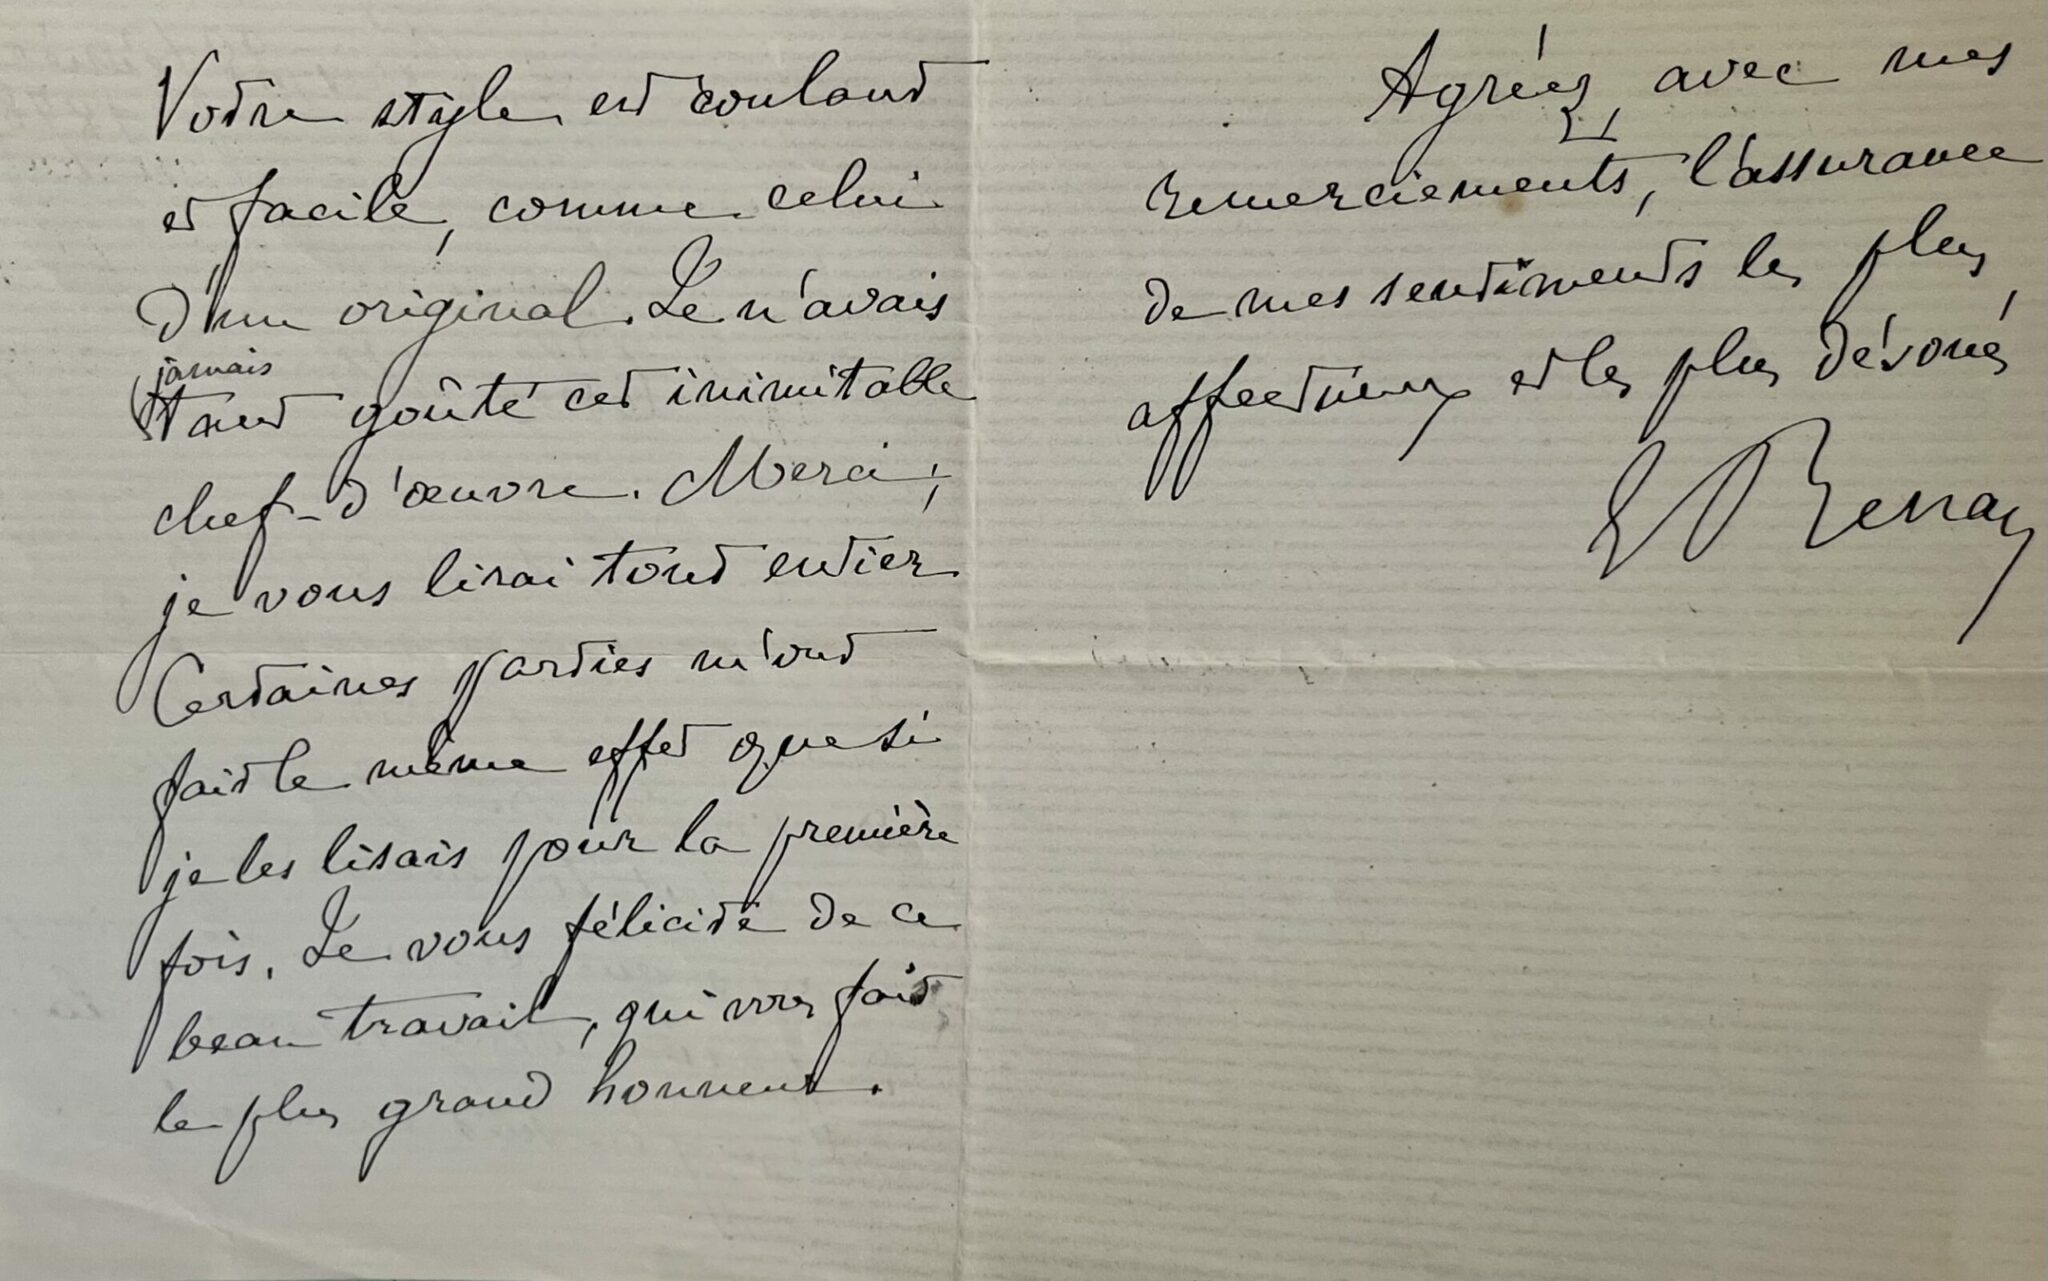 Votre style est coulant
et facile, comme celui
d'un original. Je n'avais
jamais
tant goûté cet inimitable
chef-d'œuvre. Merci ;
je vous lirai tout entier
Certaines parties m'ont
fait le même effet que si
je les lisais pour la première
fois. Je vous félicite de ce
beau travail, qui vous fait
le plus grand honneur.
Agréez, avec mes
remerciements, l'assurance
de mes sentiments les plus
affectueux et les plus dévoués
E Renan